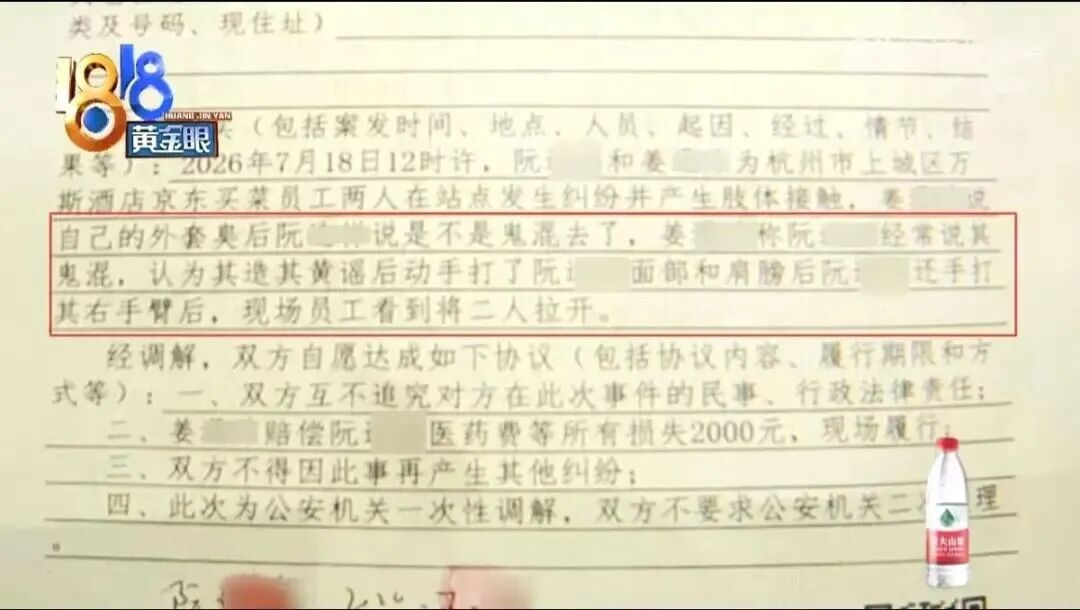 类及号码、现住址)
1818
HUANG JIN YAN
黄金眼
(包括案发时间、地点、人员、起因、经过、情节、结
果等):2026年7月18日12时许,阮 和姜 为杭州市上城区万
斯酒店京东买菜员工两人在站点发生纠纷并产生肢体接触,姜 说
自己的外套臭后阮 说是不是鬼混去了,姜 称阮 经常说其
鬼混,认为其造其黄谣后动手打了阮 面部和肩膀后阮 还手打
其右手臂后,现场员工看到将二人拉开。
经调解,双方自愿达成如下协议(包括协议内容、履行期限和方
式等):一、双方互不追究对方在此次事件的民事、行政法律责任;
二、姜 赔偿阮 医药费等所有损失2000元,现场履行;
三、双方不得因此事再产生其他纠纷;
四、此次为公安机关一次性调解,双方不要求公安机关二 理
。
阮